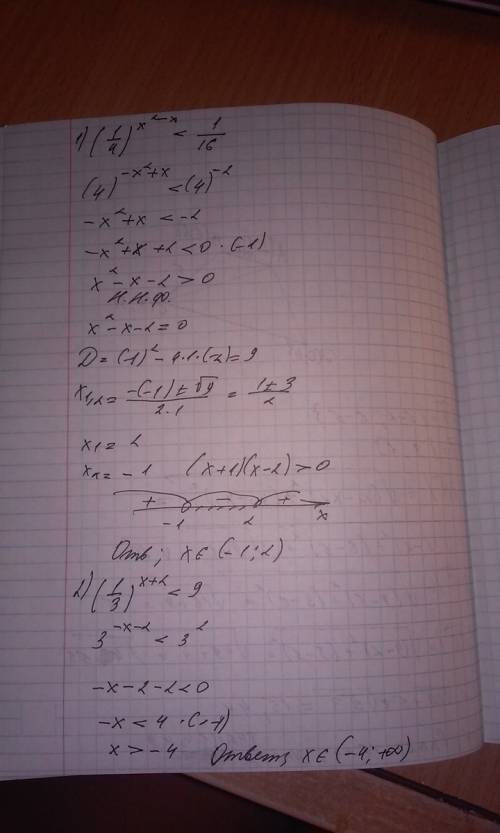 1) (1/4)^(x²-x) < 1/16
(4)^(-x²+x) < (4)^(-2)
-x²+x < -2
-x²+x+2 < 0 · (-1)
x²-x-2 > 0
Н.Н.Ф.
x²-x-2 = 0
D = (-1)² - 4·1·(-2) = 9
x1,2 = (-(-1) ± √9)/(2·1) = (1±3)/2
x1 = 2
x2 = -1 (x+1)(x-2) > 0
+ - +
-1 2 x
Отв; x∈(-1;2)
2) (1/3)^(x+2) < 9
3^(-x-2) < 3²
-x-2-2<0
-x < 4 ·(-1)
x > -4 Ответ; x∈(-4;+∞)